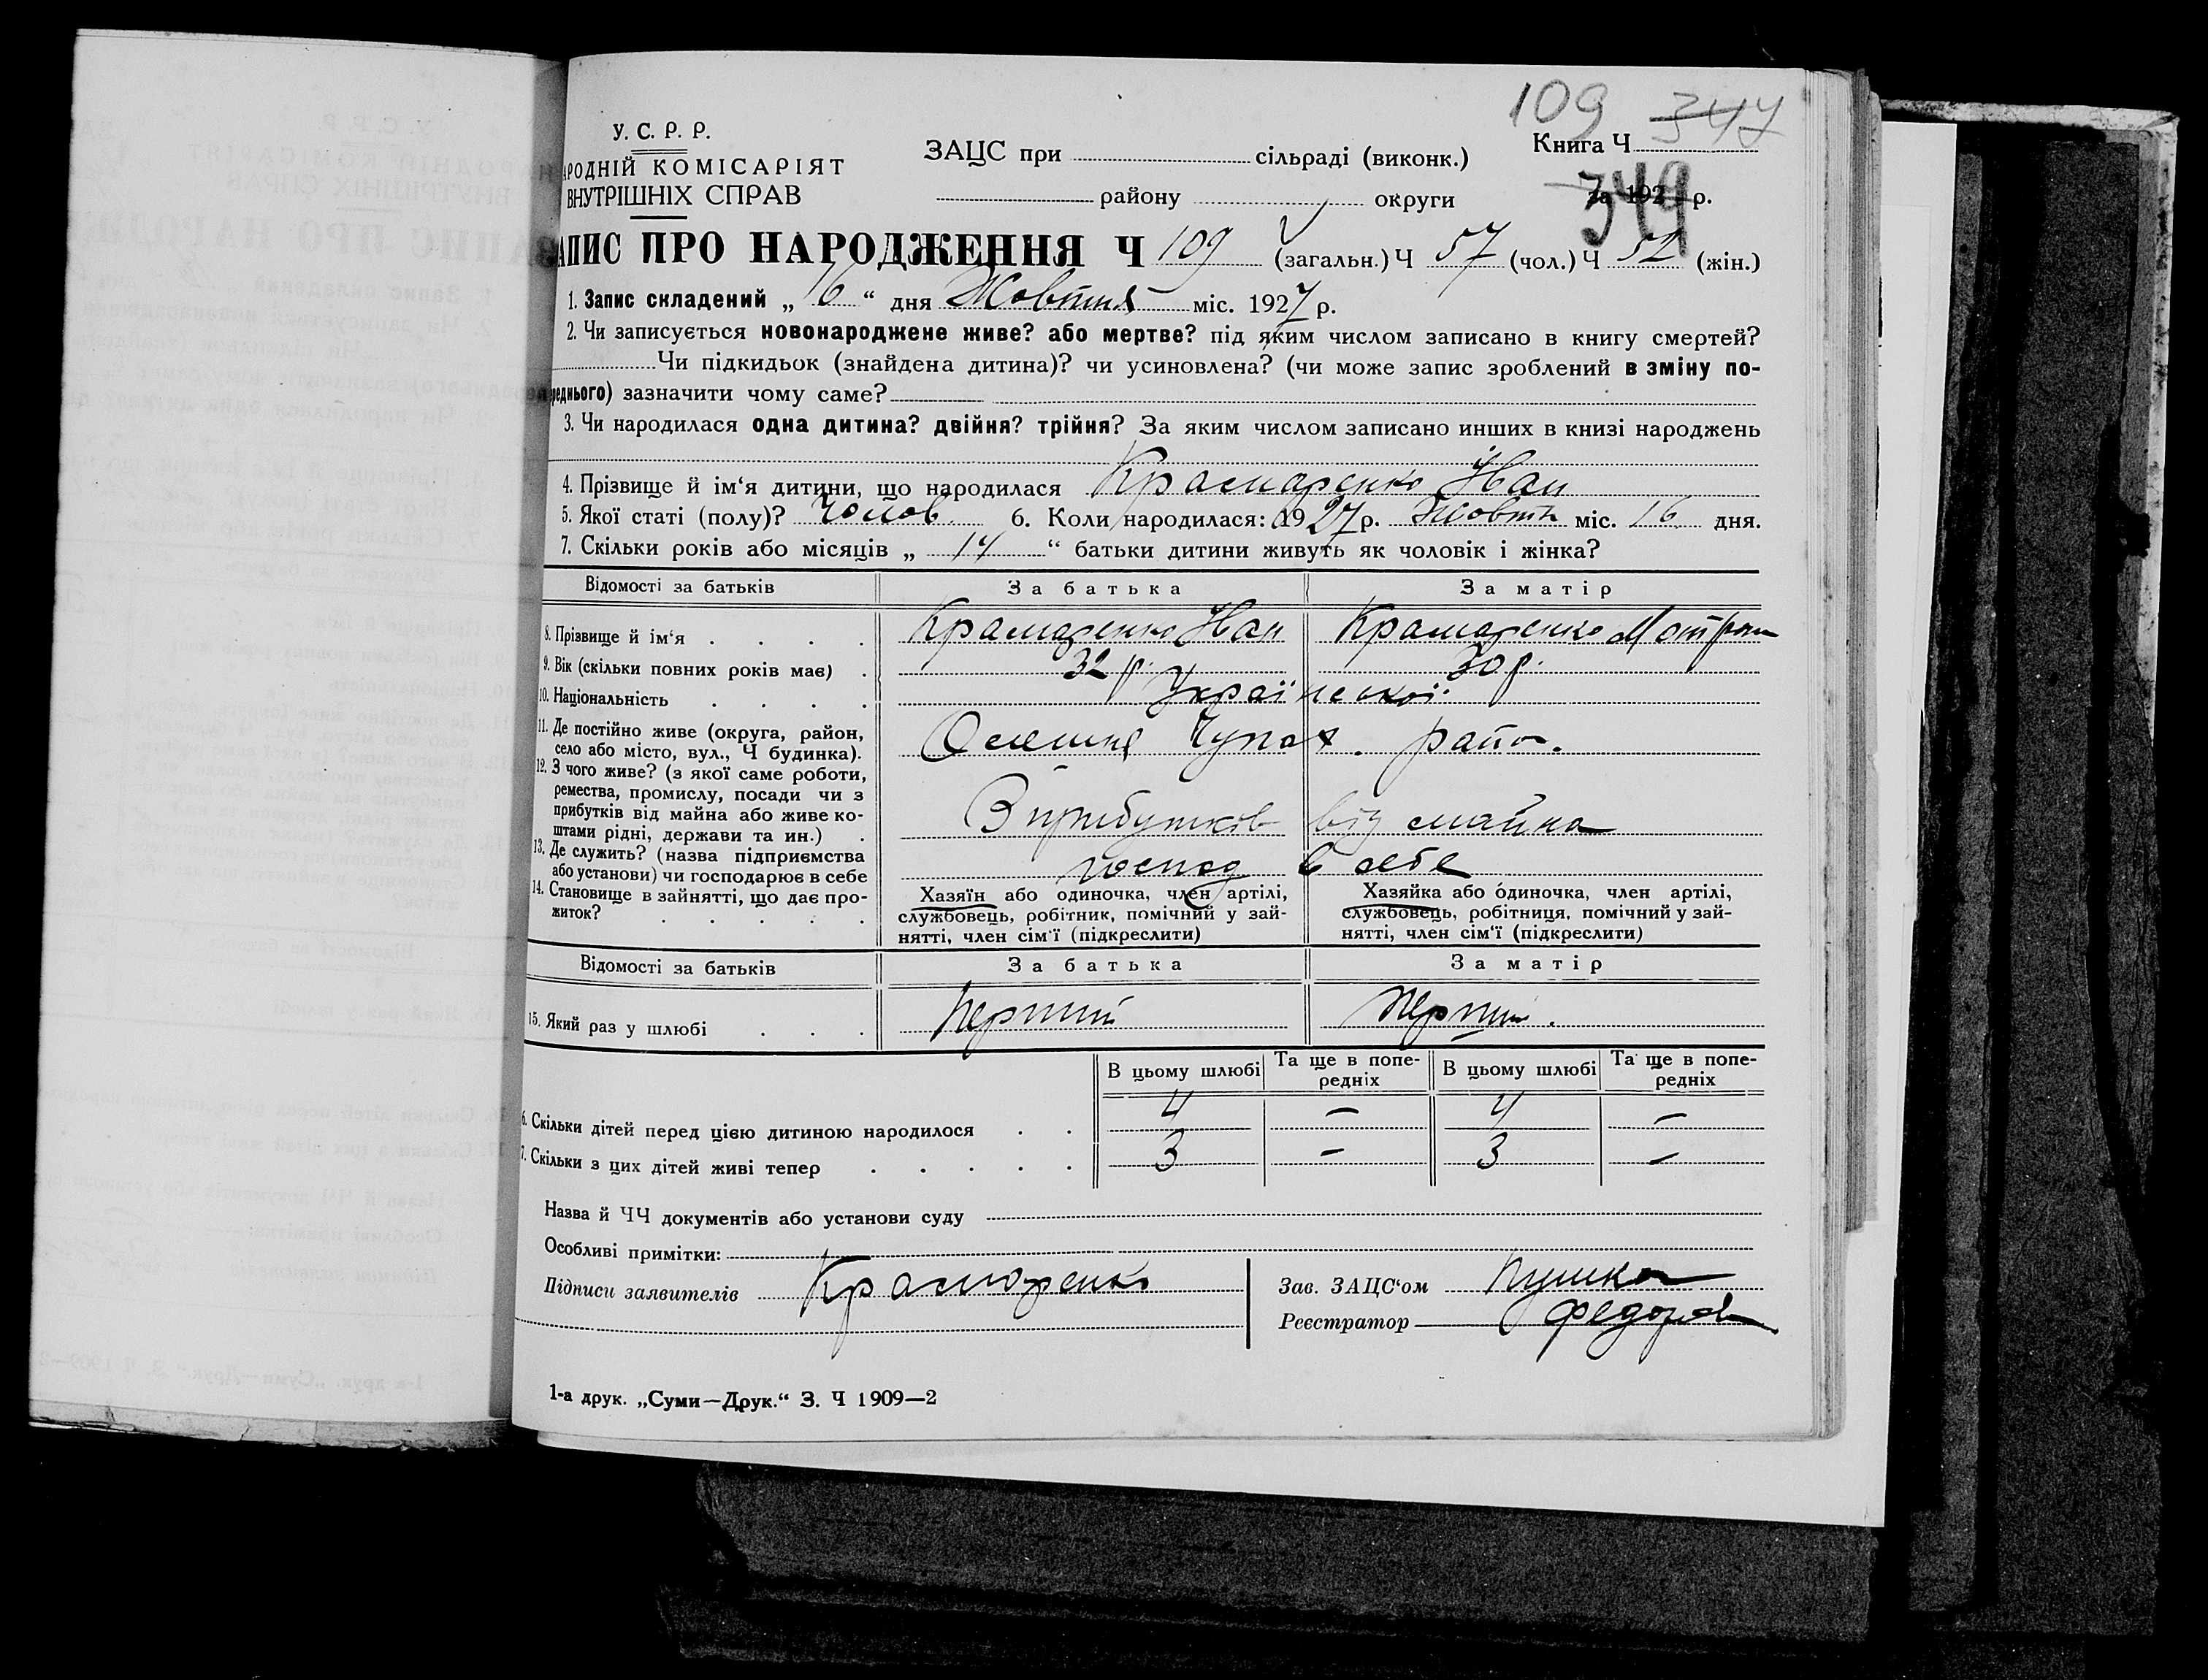 109 347
У. С. Р. Р.
АРОДНІЙ КОМІСАРІЯТ
ВНУТРІШНІХ СПРАВ
ЗАЦС при сільраді (виконк.)
району округи
Книга Ч
349
за 192 р.
АПИС ПРО НАРОДЖЕННЯ Ч 109 (загальн.) Ч 57 (чол.) Ч 52 (жін.)
1. Запис складений „ 16 “ дня Жовтня міс. 1927 р.
2. Чи записується новонароджене живе? або мертве? під яким числом записано в книгу смертей?
Чи підкидьок (знайдена дитина)? чи усиновлена? (чи може запис зроблений в зміну по-
ереднього) зазначити чому саме?
3. Чи народилася одна дитина? двійня? трійня? За яким числом записано инших в книзі народжень
4. Прізвище й ім‘я дитини, що народилася Крамаренко Іван
5. Якої статі (полу)? Чолов. 6. Коли народилася: 1927 р. Жовтн міс. 16 дня.
7. Скільки років або місяців „ 14 “ батьки дитини живуть як чоловік і жінка?
Відомості за батьків За батька За матір
8. Прізвище й ім‘я Крамаренко Іван Крамаренко Мотрона
9. Вік (скільки повних років має) 32 р. 30 р.
10. Національність Української
11. Де постійно живе (округа, район,
село або місто, вул., Ч будинка). Олешня Чупах. район.
12. З чого живе? (з якої саме роботи,
ремества, промислу, посади чи з
прибутків від майна або живе ко-
штами рідні, держави та ин.) З прибутків від майна
13. Де служить? (назва підприємства
або установи) чи господарює в себе господ в себе
14. Становище в зайнятті, що дає про-
житток?
Хазяїн або одиночка, член артілі,
службовець, робітник, помічний у зай-
нятті, член сім‘ї (підкреслити)
Хазяйка або одиночка, член артілі,
службовець, робітниця, помічний у зай-
нятті, член сім‘ї (підкреслити)
Відомості за батьків За батька За матір
15. Який раз у шлюбі Перший Перший.
В цьому шлюбі Та ще в попе-редніх В цьому шлюбі Та ще в попе-редніх
6. Скільки дітей перед цією дитиною народилося 4 – 4 –
7. Скільки з цих дітей живі тепер 3 – 3 –
Назва й ЧЧ документів або установи суду
Особливі примітки:
Підписи заявителів Крамаренко
Зав. ЗАЦС‘ом Пушкар
Реєстратор Федоров
1-а друк. „Суми—Друк.“ З. Ч 1909—2